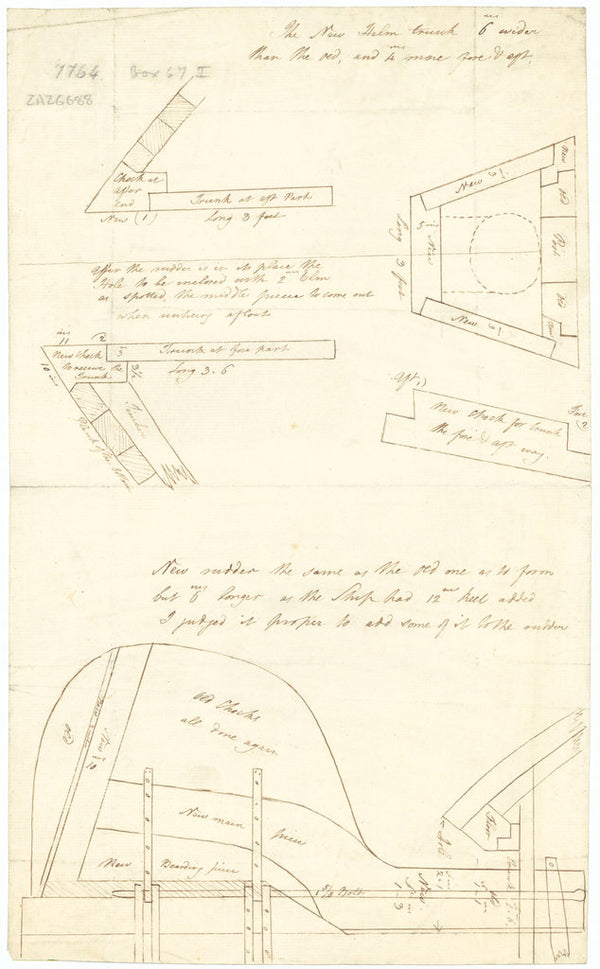 The New Helm trunk 6 ins wider
than the old, and 4 ins more fore & aft.
7764 Box 67 I
ZAZ6688
Chock at
after
End
New (1)
Trunk at aft Part
Long 3 feet
New 3 i
New
old
Post
old
New
5 ins New
Long 3 feet
New 3 i
after the rudder is in its place the
Hole to be enclosed with 2 ins Elm
as spotted, the middle piece to come out
when unhung afloat
11 ins
2
New Chock
to receive the
Trunk
3
3½
10 ins
Trunk at fore part
Long 3.6
Rudder
Plank of the
Aft 1)
Fore
(2
New Chock for trunk
the fore & aft way.
New rudder the same as the old one as to form
but 6 ins longer as the Ship had 12 ins keel added
I judged it proper to add some of it to the rudder
old
New
10 ins
old Chocks
all done again
New main piece
New Bearding piece
Bolt
New
1..3